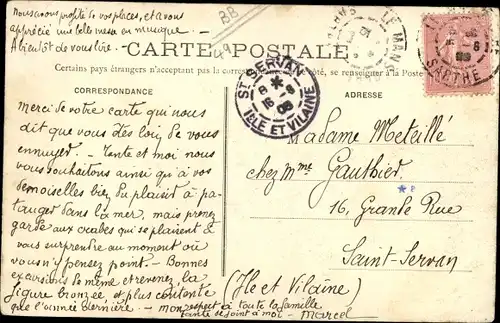 Nous avons profité de vos places, et avons
apprécié une belle messe en musique.
A bientôt de vous lire.
88
49
CARTE POSTALE
Certains pays étrangers n'acceptent pas la correspondance de ce côté, se renseigner à la Poste
LE MANS
SARTHE
ST SERVAN
8 8
16 08
ILLE ET VILAINE
CORRESPONDANCE
ADRESSE
Merci de votre carte qui nous
dit que vous êtes loin de vous
ennuyer. - Tante et moi nous
vous souhaitons ainsi qu'à vos
demoiselles bien du plaisir à pa-
tauger dans la mer, mais prenez
garde aux crabes qui se plaisent à
vous surprendre au moment où
vous n'y pensez point. - Bonnes
excursions de même et revenez, la
figure bronzée, et plus contente
que l'année dernière. - mon respect à toute la famille
Tante se joint à moi - Marcel
Madame Métaillé
chez Mme Gauthier
16, Grande Rue
Saint-Servan
(Ile et Vilaine)